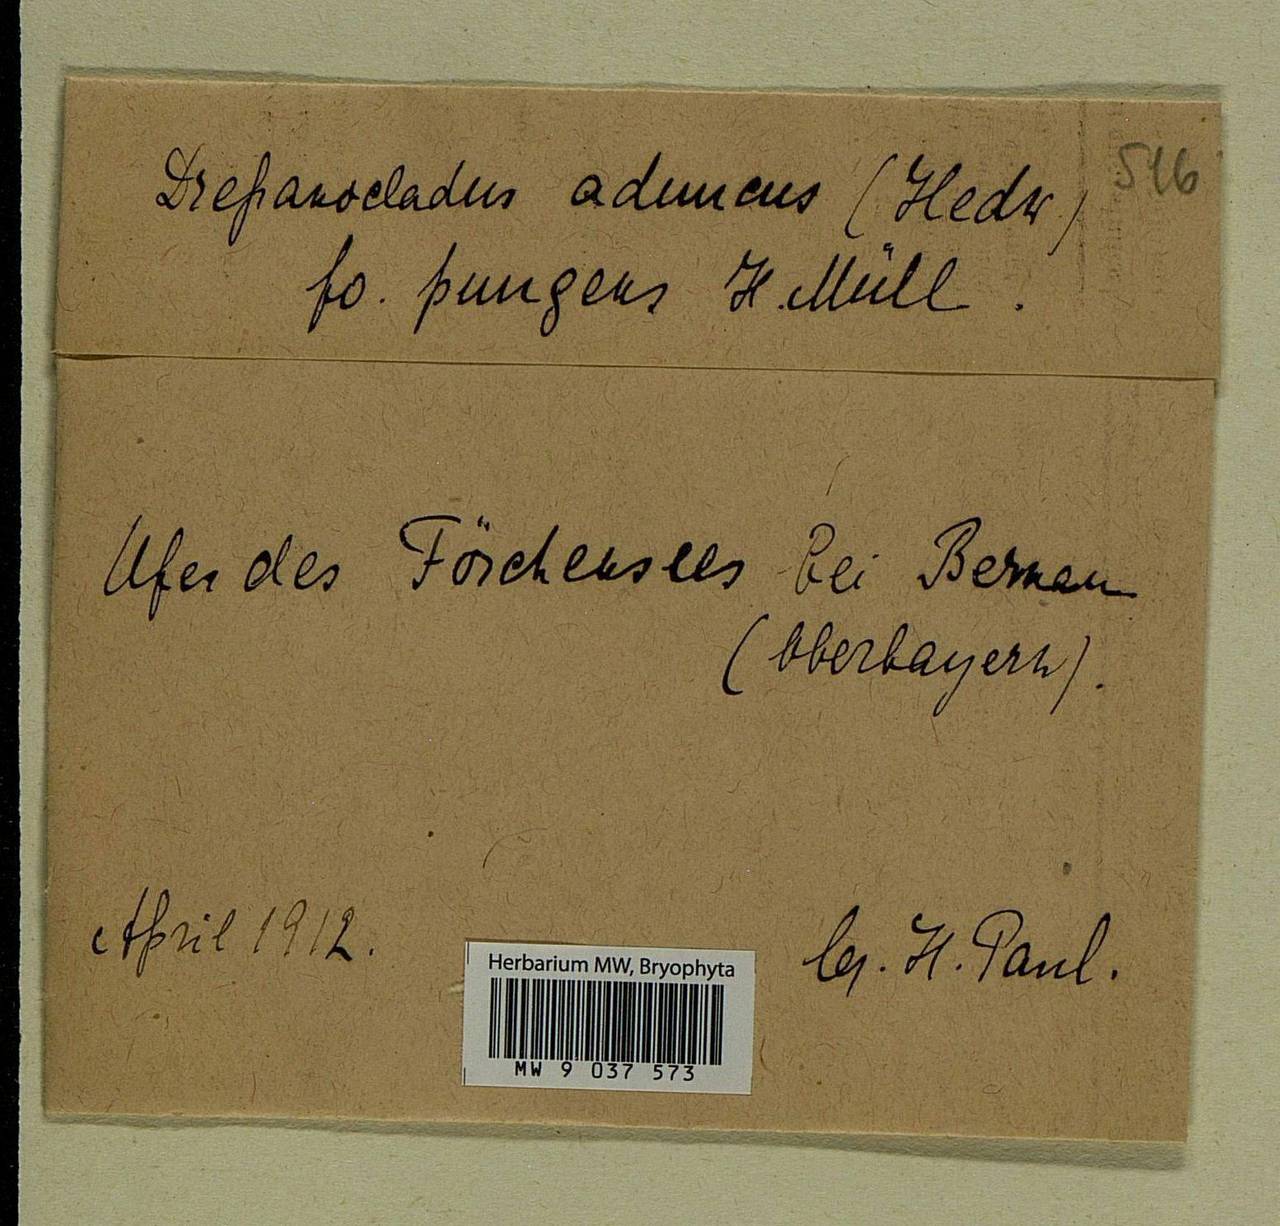 Drepanocladus aduncus (Hedw.) 516
fo. pungens H. Müll.
Ufer des Förchensees bei Bernau
(Oberbayern).
April 1912.
lg. H. Paul.
Herbarium MW, Bryophyta
MW 9 037 573